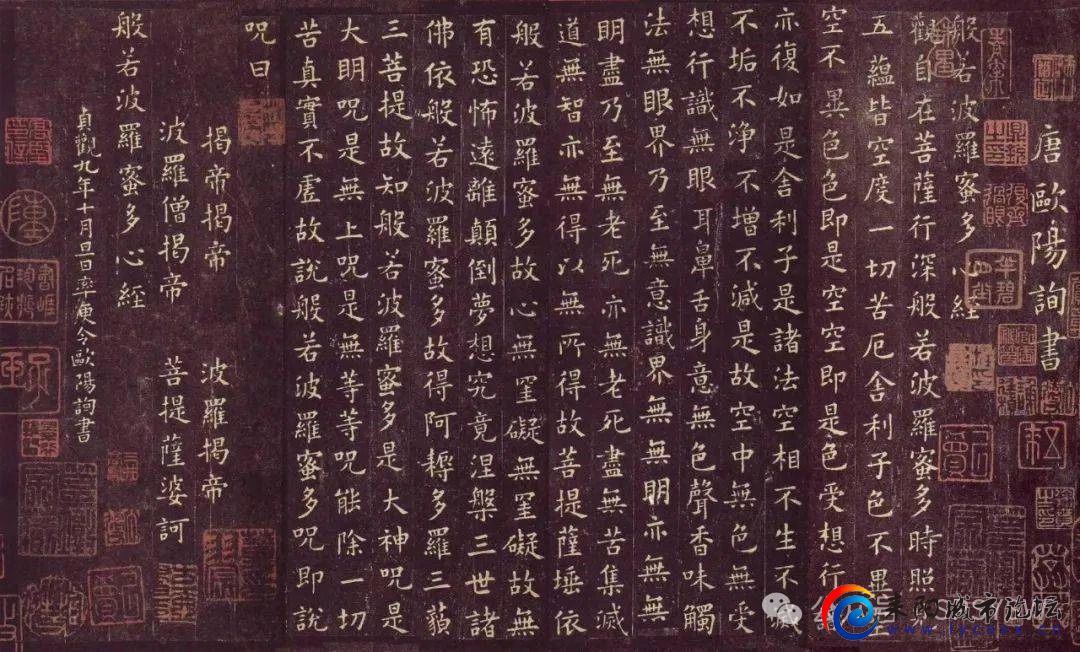 唐歐陽詢書
般若波羅蜜多心経
觀自在菩薩行深般若波羅蜜多時照
五蘊皆空度一切苦厄舍利子色不異空
空不異色色即是空空即是色受想行識
亦復如是舍利子是諸法空相不生不滅
不垢不浄不增不減是故空中無色無受
想行識無眼耳鼻舌身意無色聲香味觸
法無眼界乃至無意識界無無明亦無無
明盡乃至無老死亦無老死盡無苦集滅
道無智亦無得以無所得故菩提薩埵依
般若波羅蜜多故心無罣礙無罣礙故無
有恐怖遠離顛倒夢想究竟涅槃三世諸
佛依般若波羅蜜多故得阿耨多羅三藐
三菩提故知般若波羅蜜多是大神咒是
大明咒是無上咒是無等等咒能除一切
苦真實不虛故說般若波羅蜜多咒即說
咒曰
揭帝揭帝 波羅揭帝
波羅僧揭帝 菩提薩婆訶
般若波羅蜜多心経
貞觀九年十月旦日率更令歐陽詢書
耒阳城市论坛